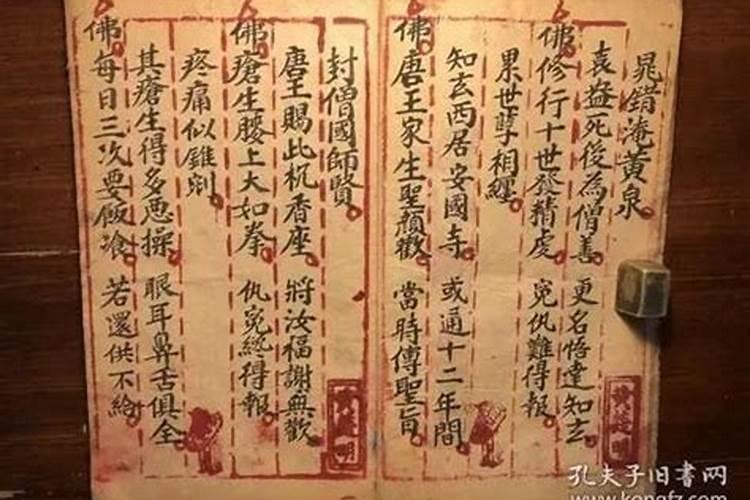 晁錯淹黃泉
袁盎死後為僧善 更名悟達知玄
佛修行十世發精虔 寃仇難得報
累世孽相纏
知玄西居安國寺 或通十二年間
佛唐王家生聖顏歡 當時傳聖旨
封僧國師賢
唐王賜此杌香座 將汝福謝無歡
佛瘡生腰上大如拳 仇寃終得報
疼痛似錐剜
其瘡生得多悪操 眼耳鼻舌俱全
佛每日三次要飯飡 若還供不給
孔夫子旧书网
www.kongfz.com